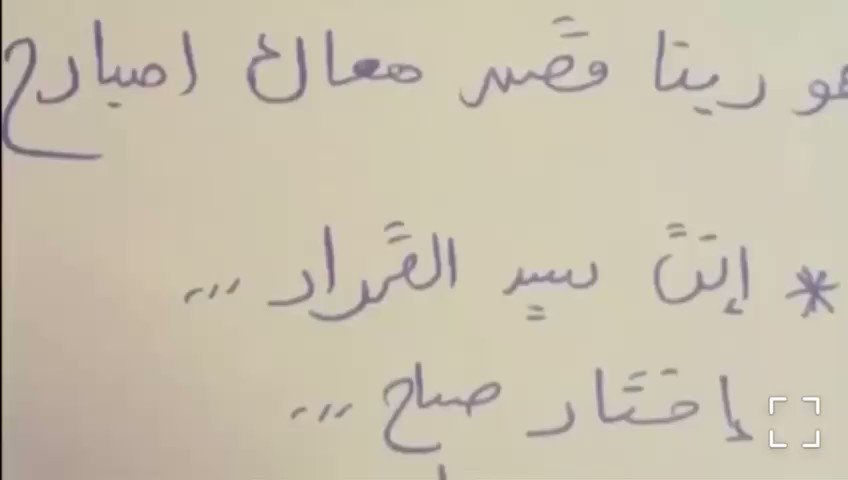 هو ربنا قصر معاك امبارح
* إنت سيد القرار ...
إختار صح ...